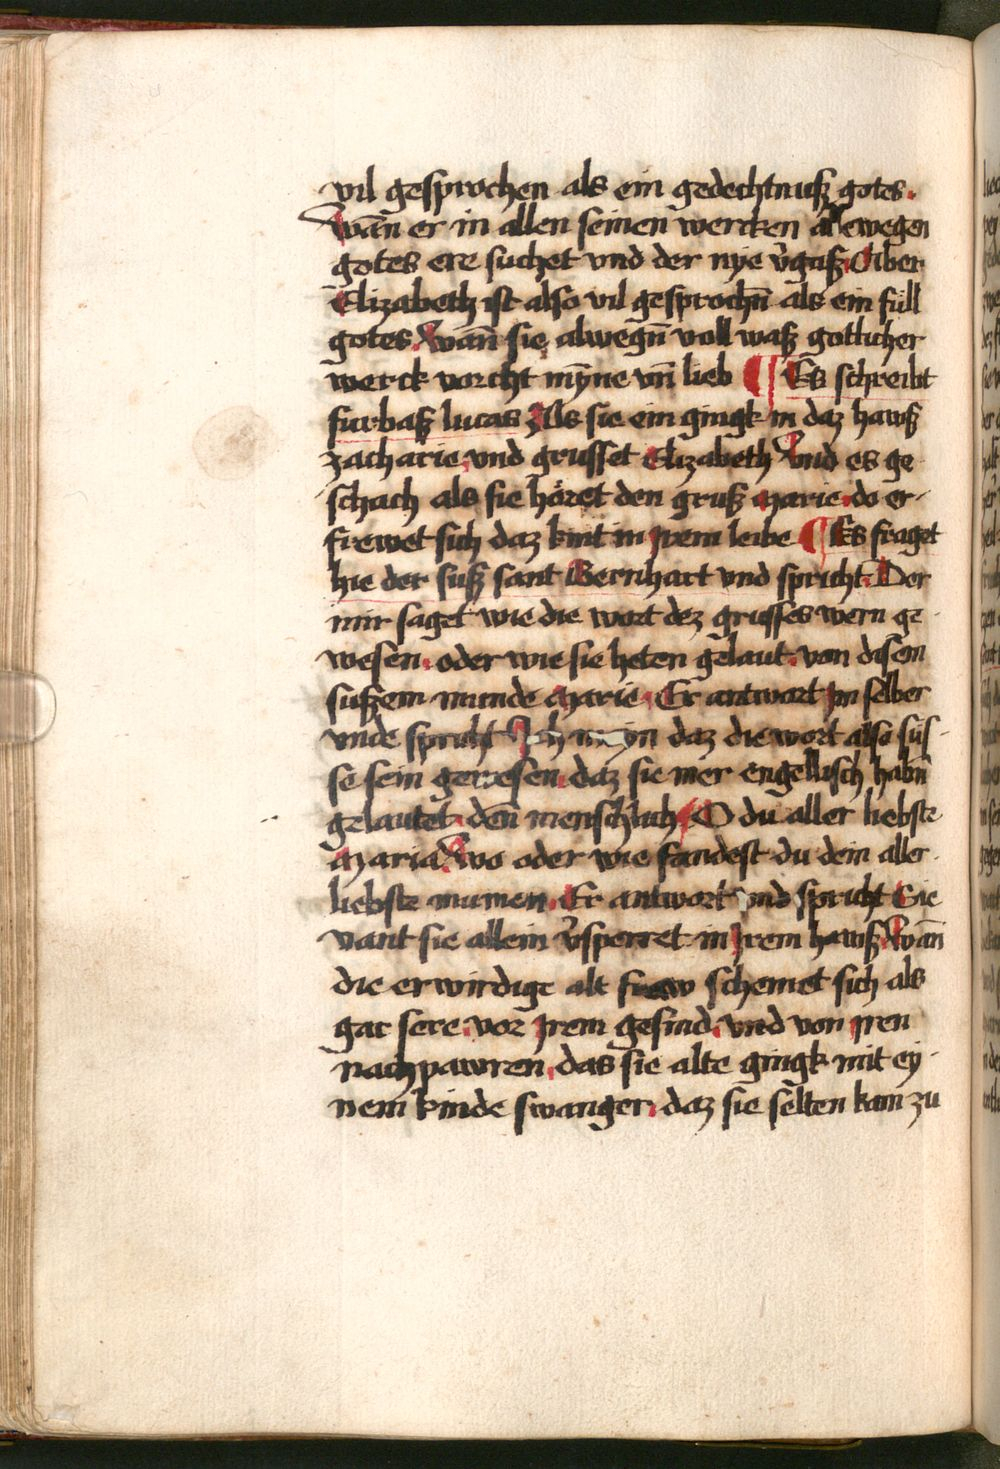 vil gesprochen als ein gedechtnuß gotes.
Wān er in allen seinen wercken allewegen
gotes ere suchet vnd der nye v̄gaß. Aber
Elizabeth ist also vil gesprochn̄ als ein füll
gotes. Wān sie alwegn̄ voll waß gotlicher
werck vorcht mȳne vn̄ lieb ¶ Es schreibt
furbaß lucas Als sie ein gingk in daz hawß
zacharie. vnd grusset Elizabeth Vnd es ge
schach als sie höret den gruß Marie. do er-
frewet sich daz kint in Jrem leibe ¶ Es fraget
hie der suß sant Bernhart vnd spricht. Der
mir saget wie die wort dez grusses wern ge
wesen. oder wie sie heten gelaut. von disem
sußem munde Marie. Er antwort Jm selber
vnde spricht Jch meyn daz die wort also sus-
se sein gewesen. daz sie mer engelisch habn̄
gelautet. den̄ menschlich. O du aller liebste
Maria. Wo oder wie fandest du dein aller
liebste mumen. Er antwort vnd spricht Sie
vant sie allein v̄sperret in Jrem hawß. Wān
die erwirdige alt fraw schemet sich als
gar sere. vor Jrem gesind. vnd von Jren
nachpawren. das sie alte gingk mit ey-
nem kinde swanger. daz sie selten kam zu